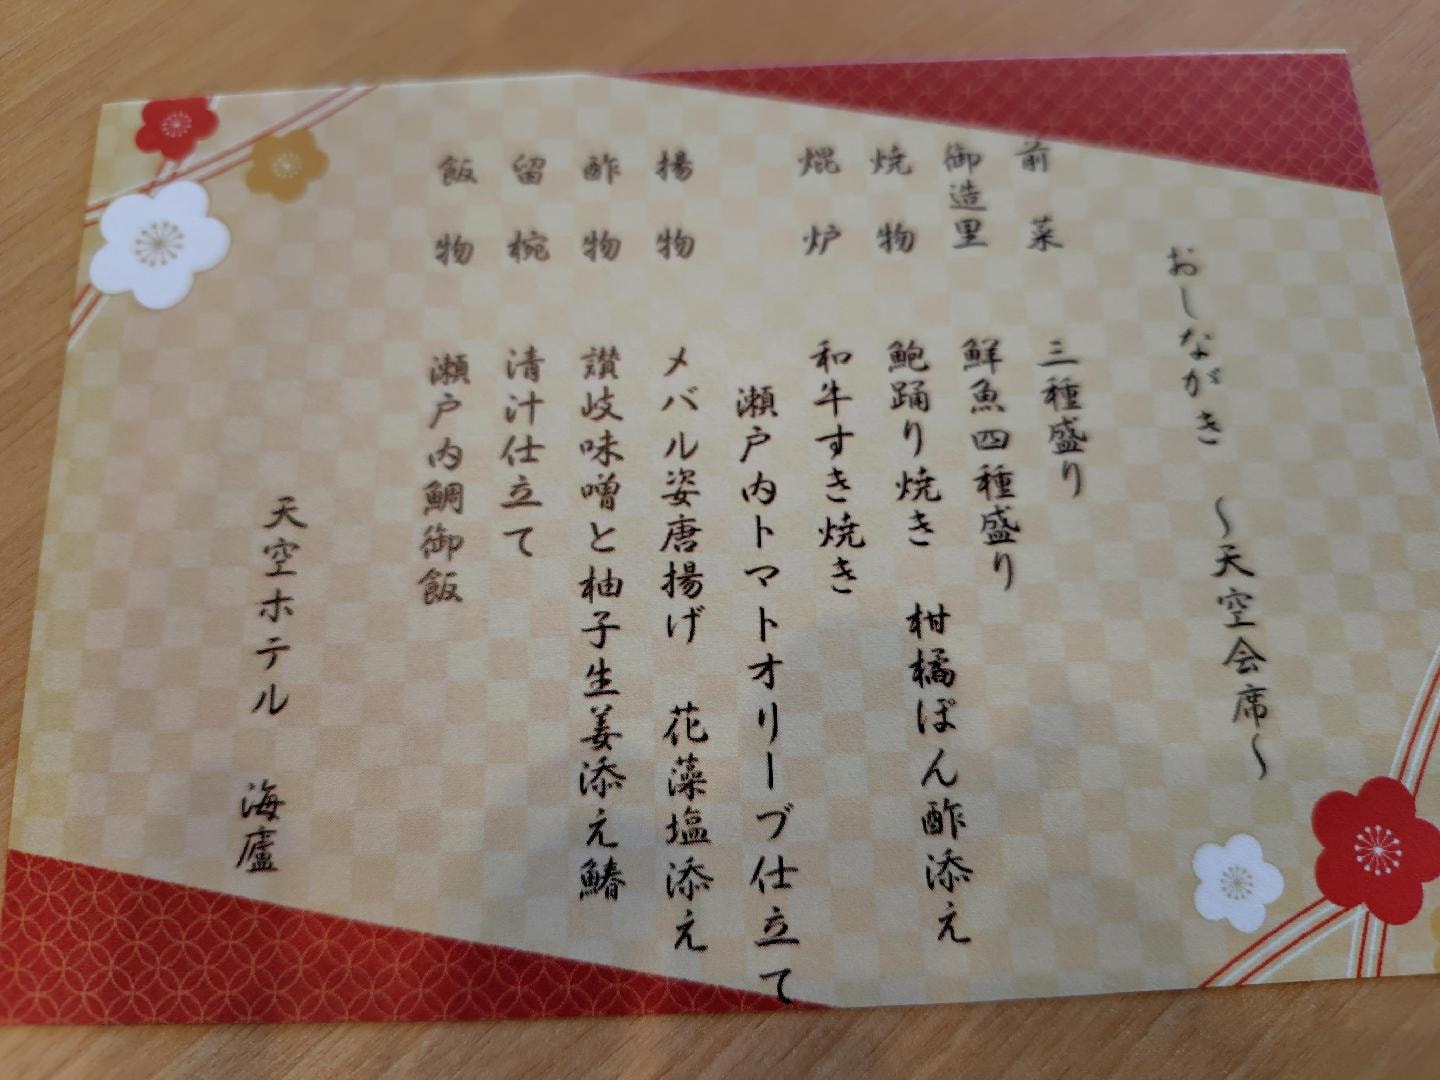 おしながき　～天空会席～
前菜　三種盛り
御造里　鮮魚四種盛り
焼物　鮑踊り焼き　柑橘ぽん酢添え
焜炉　和牛すき焼き
瀬戸内トマトオリーブ仕立て
揚物　メバル姿唐揚げ　花藻塩添え
酢物　讃岐味噌と柚子生姜添え鰆
留椀　清汁仕立て
飯物　瀬戸内鯛御飯
天空ホテル　海廬